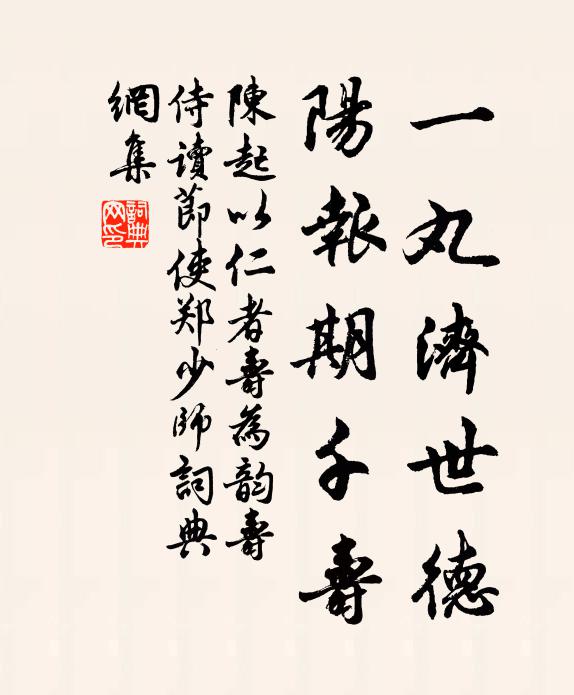 一丸濟世德
陽報期千壽
陳起以仁者壽為韵壽
侍讀節使郑少師詞典
網集
詞典
网印